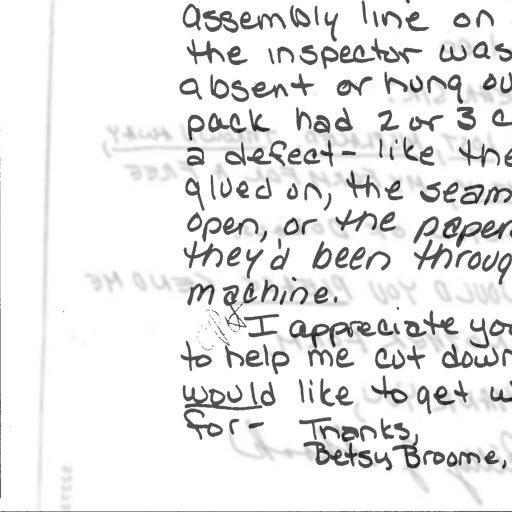 assembly line on
the inspector was
absent or hung ou
pack had 2 or 3 c
a defect- like the
glued on, the seam
open, or the paper
they'd been throug
machine.
I appreciate you
to help me cut down
would like to get w
for- Thanks,
Betsy Broome,